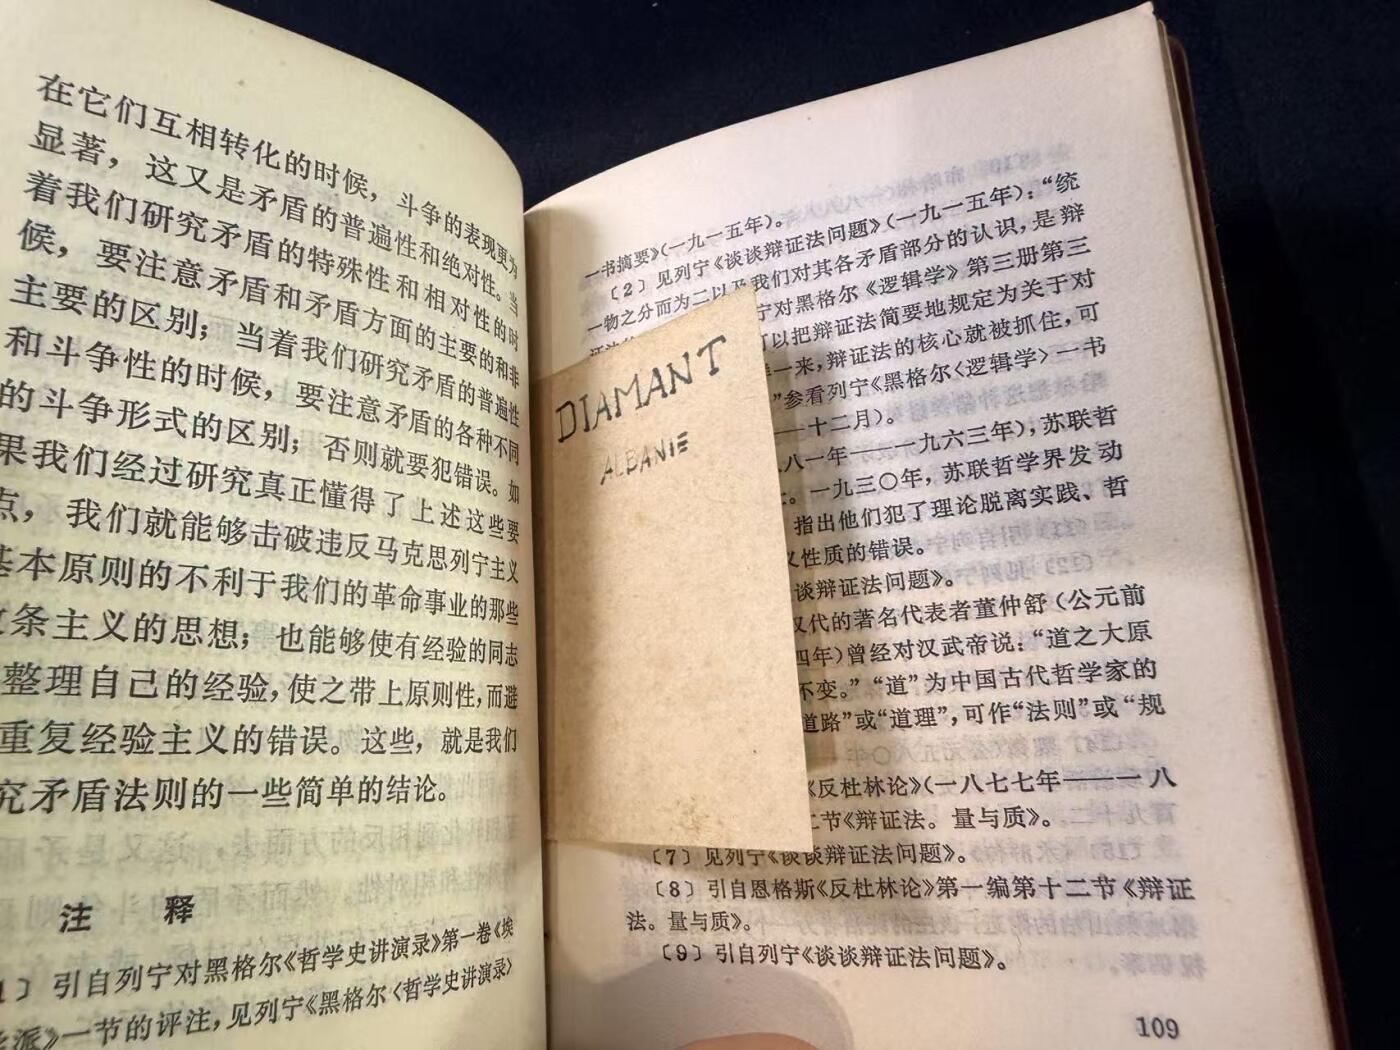 在它们互相转化的时候，斗争的表现更为
显著，这又是矛盾的普遍性和绝对性。当
着我们研究矛盾的特殊性和相对性的时
候，要注意矛盾和矛盾方面的主要的和非
主要的区别；当着我们研究矛盾的普遍性
和斗争性的时候，要注意矛盾的各种不同
的斗争形式的区别；否则就要犯错误。如
果我们经过研究真正懂得了上述这些要
点，我们就能够击破违反马克思列宁主义
基本原则的不利于我们的革命事业的那些
条主义的思想；也能够使有经验的同志
整理自己的经验，使之带上原则性，而避
重复经验主义的错误。这些，就是我们
究矛盾法则的一些简单的结论。
注释
1〕引自列宁对黑格尔《哲学史讲演录》第一卷《埃
派》一节的评注，见列宁《黑格尔〈哲学史讲演录〉
一书摘要》（一九一五年）。
〔2〕见列宁《谈谈辩证法问题》（一九一五年）：“统
一物之分而为二以及我们对其各矛盾部分的认识，是辩
宁对黑格尔《逻辑学》第三册第三
可以把辩证法简要地规定为关于对
一来，辩证法的核心就被抓住，可
”参看列宁《黑格尔〈逻辑学〉一书
——十二月）。
八一年——一九六三年），苏联哲
。一九三〇年，苏联哲学界发动
指出他们犯了理论脱离实践、哲
义性质的错误。
谈辩证法问题》。
汉代的著名代表者董仲舒（公元前
四年）曾经对汉武帝说：“道之大原
不变。”“道”为中国古代哲学家的
道路”或“道理”，可作“法则”或“规
《反杜林论》（一八七七年——一八
二节《辩证法。量与质》。
〔7〕见列宁《谈谈辩证法问题》。
〔8〕引自恩格斯《反杜林论》第一编第十二节《辩证
法。量与质》。
〔9〕引自列宁《谈谈辩证法问题》。
109
DIAMANT
ALBANIE